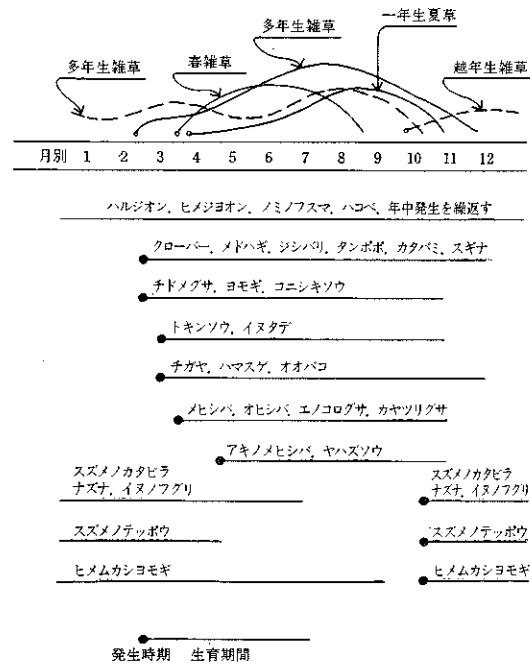 多年生雑草
一年生夏草
多年生雑草
春雑草
越年生雑草
月別 1 2 3 4 5 6 7 8 9 10 11 12
ハルジオン、ヒメジヨオン、ノミノフスマ、ハコベ、年中発生を繰返す
クローバー、メドハギ、ジシバリ、タンポポ、カタバミ、スギナ
チドメグサ、ヨモギ、コニシキソウ
トキンソウ、イヌタデ
チガヤ、ハマスゲ、オオバコ
メヒシバ、オヒシバ、エノコログサ、カヤツリグサ
アキノメヒシバ、ヤハズソウ
スズメノカタビラ
ナズナ、イヌノフグリ
スズメノカタビラ
ナズナ、イヌノフグリ
スズメノテッポウ
スズメノテッポウ
ヒメムカシヨモギ
ヒメムカシヨモギ
発生時期 生育期間